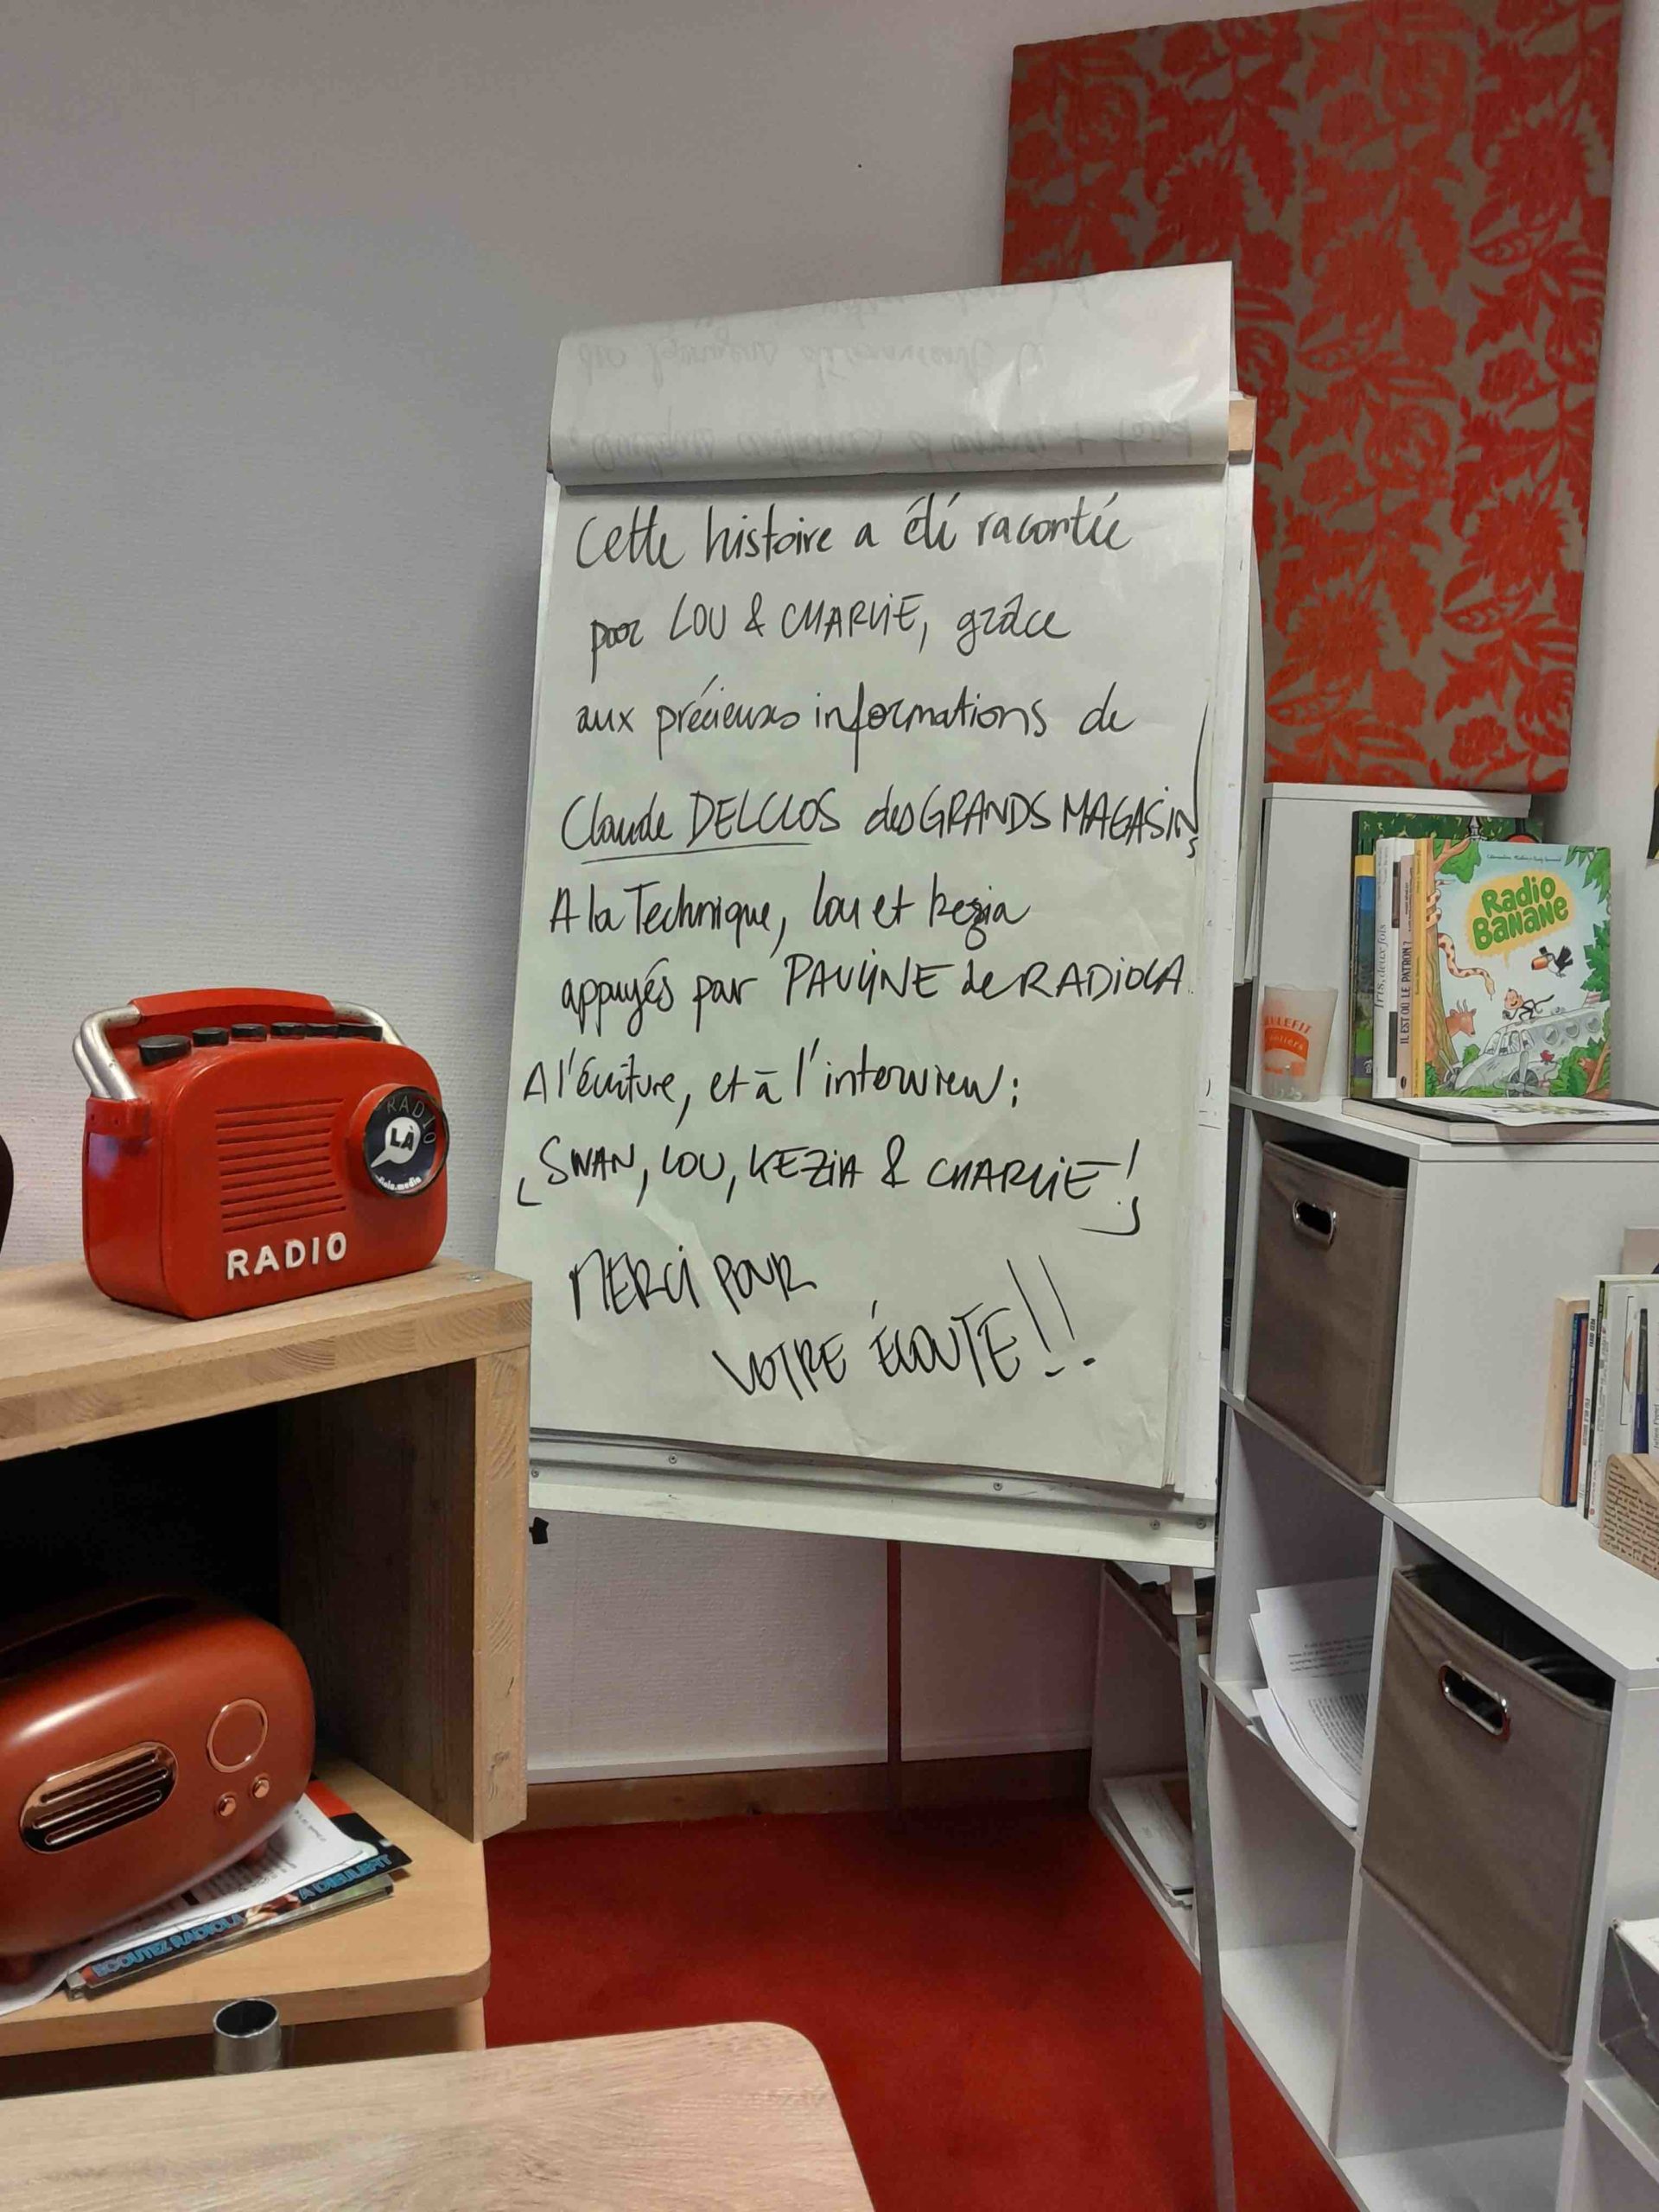 Cette histoire a été racontée
par LOU & CHARLIE, grâce
aux précieuses informations de
Claude DELCLOS des GRANDS MAGASINS
A la Technique, lou et kezia
appuyés par PAULINE de RADIOLA
A l'écriture, et à l'interview:
SWAN, LOU, KEZIA & CHARLIE!
MERCI POUR
VOTRE ÉCOUTE!!
RADIO
LA
RADIO
Radio
BANANE
Iris, deux fois
IL EST OÙ LE PATRON?
ECOUTEZ RADIOLA
A DIEULEFIT